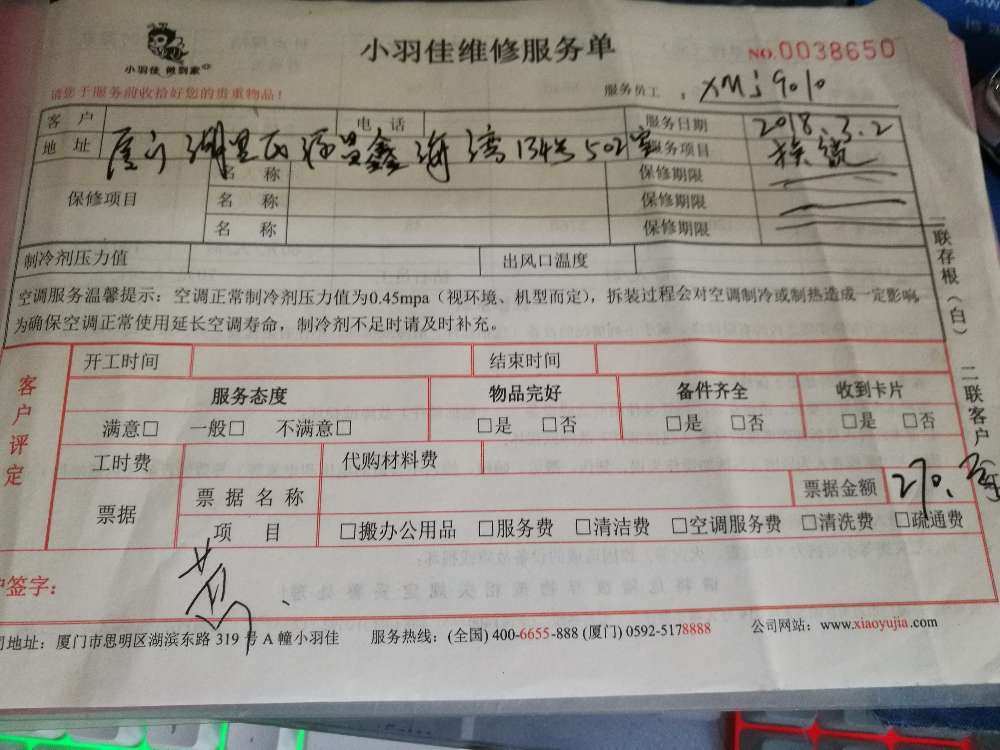 小羽佳维修服务单
NO.0038650
小羽佳 做到家
请您于服务前收拾好您的贵重物品！
服务员工 ： XMJ9010
客 户 电 话 服务日期 2018.3.2
地 址 厦门湖里区源昌鑫海湾134号502室 服务项目
保修项目
名 称 保修期限
名 称 保修期限
名 称 保修期限
制冷剂压力值 出风口温度
空调服务温馨提示：空调正常制冷剂压力值为0.45mpa（视环境、机型而定），拆装过程会对空调制冷或制热造成一定影响，
为确保空调正常使用延长空调寿命，制冷剂不足时请及时补充。
一联存根（白） 二联客户
客户评定
开工时间 结束时间
服务态度 物品完好 备件齐全 收到卡片
满意□ 一般□ 不满意□ □是 □否 □是 □否 □是 □否
工时费 代购材料费
票据 票据名称 票据金额 270.
项 目 □搬办公用品 □服务费 □清洁费 □空调服务费 □清洗费 □疏通费
户签字：
司地址：厦门市思明区湖滨东路 319 号 A 幢小羽佳 服务热线：(全国) 400-6655-888 (厦门) 0592-5178888 公司网站：www.xiaoyujia.com